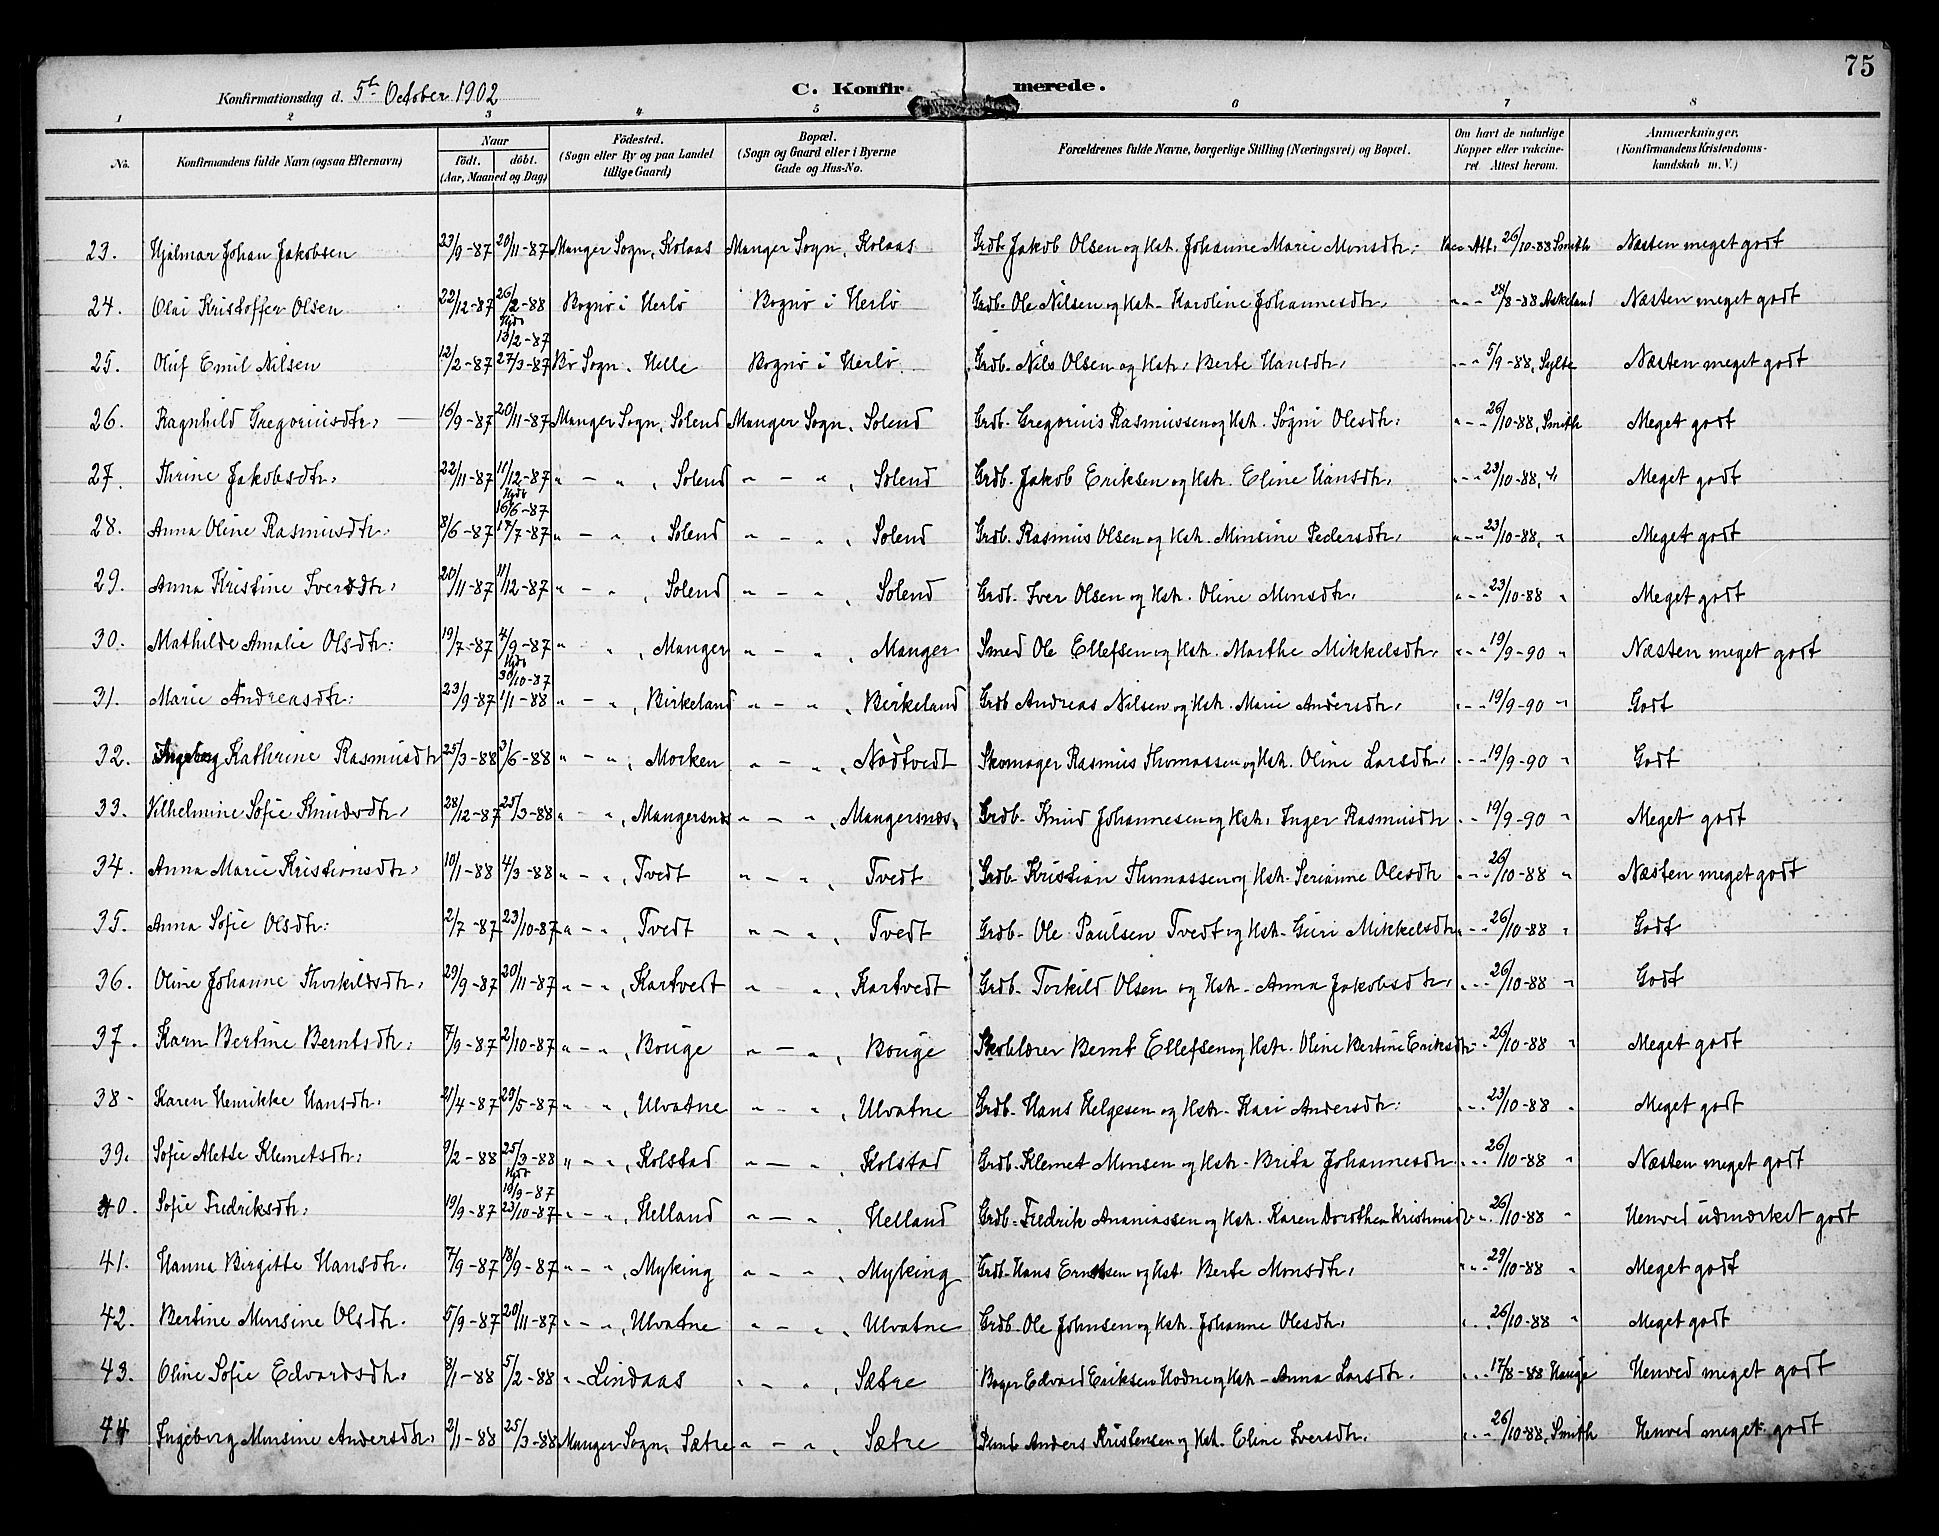 75
Konfirmationsdag d. 5te October 1902
C. Konfirmerede.
1 2 3 4 5 6 7 8
No. Konfirmandens fulde Navn (ogsaa Efternavn) Naar födt. döbt. (Aar, Maaned og Dag) Födested. (Sogn eller By og paa Landet tillige Gaard) Bopæl. (Sogn og Gaard eller i Byerne Gade og Hus-No. Forældrenes fulde Navne, borgerlige Stilling (Næringsvei) og Bopæl. Om havt de naturlige Kopper eller vakcineret Attest herom. Anmærkninger. (Konfirmandens Kristendomskundskab m. V.)
23. Hjalmar Johan Jakobsen 23/9-87 20/11-87 Manger Sogn, Kolaas Manger Sogn, Kolaas Grdb. Jakob Olsen og Hst. Johanne Marie Monsdtr: Att. 26/10-88 Smith Næsten meget godt
24. Olai Kristoffer Olsen 22/12-87 26/2-88 Bognø i Herlö Bognø i Herlö Grdb. Ole Nilsen og Hst. Karoline Johannesdtr. " - " 28/8-88 Askeland Næsten meget godt
25. Oluf Emil Nilsen 12/2-87 Hjdt 13/2-87 27/3-87 Bø Sogn. Helle Bognø i Herlö Grdb. Nils Olsen og Hstr. Berte Hansdtr. " - " 5/9-88, Sylte Næsten meget godt
26. Ragnhild Gregoriusdtr. 16/9-87 20/11-87 Manger Sogn, Solend Manger Sogn. Solend Grdb. Gregorius Rasmussen og Hst. Sögni Olesdtr: " - " 26/10-88, Smith Meget godt
27. Thrine Jakobsdtr. 22/11-87 11/12-87 " - ", Solend " - ", Solend Grdb. Jakob Eriksen og Hstr. Eline Hansdtr. " - " 23/10-88, " Meget godt
28. Anna Oline Rasmusdtr. 8/6-87 Hjdt 16/6-87 17/7-87 " - ", Solend " - ", Solend Grdb. Rasmus Olsen og Hstr. Monsine Pedersdtr. " - " 23/10-88, " Meget godt
29. Anna Kristine Iversdtr. 20/11-87 11/12-87 " - ", Solend " - ", Solend Grdb. Iver Olsen og Hstr. Oline Monsdtr. " - " 23/10-88 " Meget godt
30. Mathilde Amalie Olsdtr. 19/7-87 4/9-87 " ", Manger " - ", Manger Smed Ole Ellefsen og Hstr. Marthe Mikkelsdtr. " - " 19/9-90 " Næsten meget godt
31. Marie Andreasdtr: 23/9-87 Hjdt 30/10-87 1/1-88 " - ", Birkeland " - ", Birkeland Grdb Andreas Nilsen og Hstr. Marie Andersdtr. " - " 19/9-90 " Godt
32. Ingeborg Kathrine Rasmusdtr 25/3-88 3/6-88 " - ", Morken " - ", Nödtvedt Skomager Rasmus Thomassen og Hst. Oline Larsdtr. " - " 19/9-90 " Godt
33. Vilhelmine Sofie Knudsdtr. 28/12-87 25/3-88 " - ", Mangersnæs " - ", Mangersnæs. Grdb. Knud Johannesen og Hstr. Inger Rasmusdtr " - " 19/9-90 " Meget godt
34. Anna Marie Kristiansdtr. 10/1-88 4/3-88 " - ", Tvedt " - ", Tvedt Grdb. Kristian Thomassen og Hst. Serianne Olesdtr " - " 26/10-88 " Næsten meget godt
35. Anna Sofie Olsdtr: 2/7-87 23/10-87 " - ", Tvedt " - ", Tvedt Grdb. Ole Paulsen Tvedt og Hst. Guri Mikkelsdtr " - " 26/10-88 " Godt
36. Oline Johanne Thorkildsdtr. 29/9-87 20/11-87 " - ", Kartvedt " - ", Kartvedt Grdb. Torkild Olsen og Hst. Anna Jakobsdtr. " - " 26/10-88 " Godt
37. Karn Bertine Berntsdtr. 7/9-87 2/10-87 " - ", Bouge " - ", Bouge Skolelærer Bernt Ellefsen og Hstr. Oline Bertine Eriksdtr " - " 26/10-88 " Meget godt
38. Karen Henrikke Hansdtr. 21/4-87 29/5-87 " - ", Ulvatne " - ", Ulvatne Grdb. Hans Helgesen og Hstr. Kari Andersdtr: " - " 23/10-88 " Meget godt
39. Sofie Alette Klemetsdtr: 9/2-88 25/3-88 " - ", Kolstad " - ", Kolstad Grdb. Klemet Monsen og Hstr. Brita Johannesdtr. " - " 26/10-88 " Næsten meget godt
40. Sofie Fredriksdtr. 19/9-87 Hjdt 19/9-87 23/10-87 " - ", Helland " - ", Helland Grdb. Fredrik Ananiassen og Hst. Karen Dorothea " - " 26/10-88 " Henved udmærket godt
41. Hanna Birgitte Hansdtr. 7/9-87 18/9-87 " - ", Myking " - ", Myking Grdb. Hans Erntsen og Hst. Berte Monsdtr. " - " 29/10-88 " Meget godt
42. Bertine Monsine Olsdtr. 5/9-87 20/11-87 " - ", Ulvatne " - ", Ulvatne Grdb. Ole Johnsen og Hstr. Johanne Olesdtr. " - " 26/10-88 " Meget godt
43. Oline Sofie Edvardsdtr. 8/1-88 5/2-88 " - Lindaas " - ", Sætre Bager Edvard Eriksen Hodne og Hst. Anna Larsdtr. " - " 17/8-88 Hauge Henved meget godt
44 Ingeborg Monsine Andersdtr. 2/1-88 25/3-88 Manger Sogn, Sætre " - ", Sætre Anders Kristensen og Hst. Eline Iversdtr. " - " 26/10-88, Smith Henved meget godt